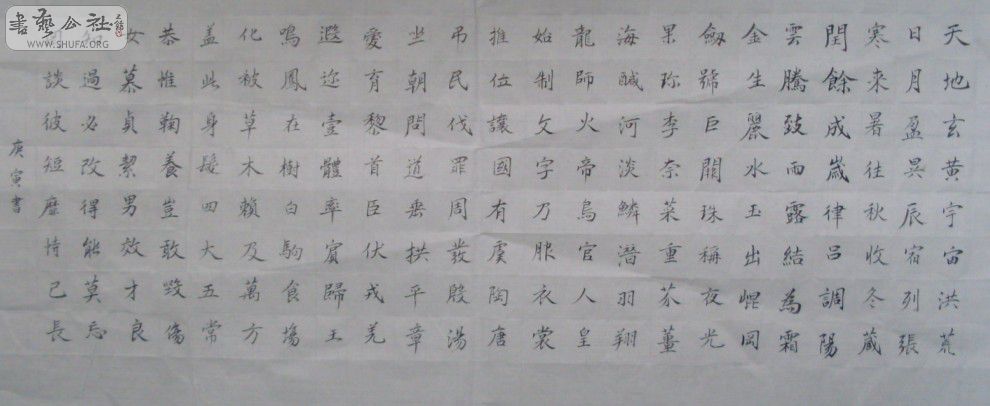 天地玄黃宇宙洪荒
日月盈昃辰宿列張
寒來暑往秋收冬藏
閏餘成歲律呂調陽
雲騰致雨露結為霜
金生麗水玉出崐岡
劍號巨闕珠稱夜光
果珍李柰菜重芥薑
海鹹河淡鱗潛羽翔
龍師火帝鳥官人皇
始制文字乃服衣裳
推位讓國有虞陶唐
弔民伐罪周發殷湯
坐朝問道垂拱平章
愛育黎首臣伏戎羌
遐迩壹體率賓歸王
鳴鳳在樹白駒食場
化被草木賴及萬方
蓋此身髮四大五常
恭惟鞠養豈敢毀傷
女慕貞絜男效才良
過必改得能莫忘
談彼短靡恃己長
庚寅書
書藝公社
www.SHUFA.ORG